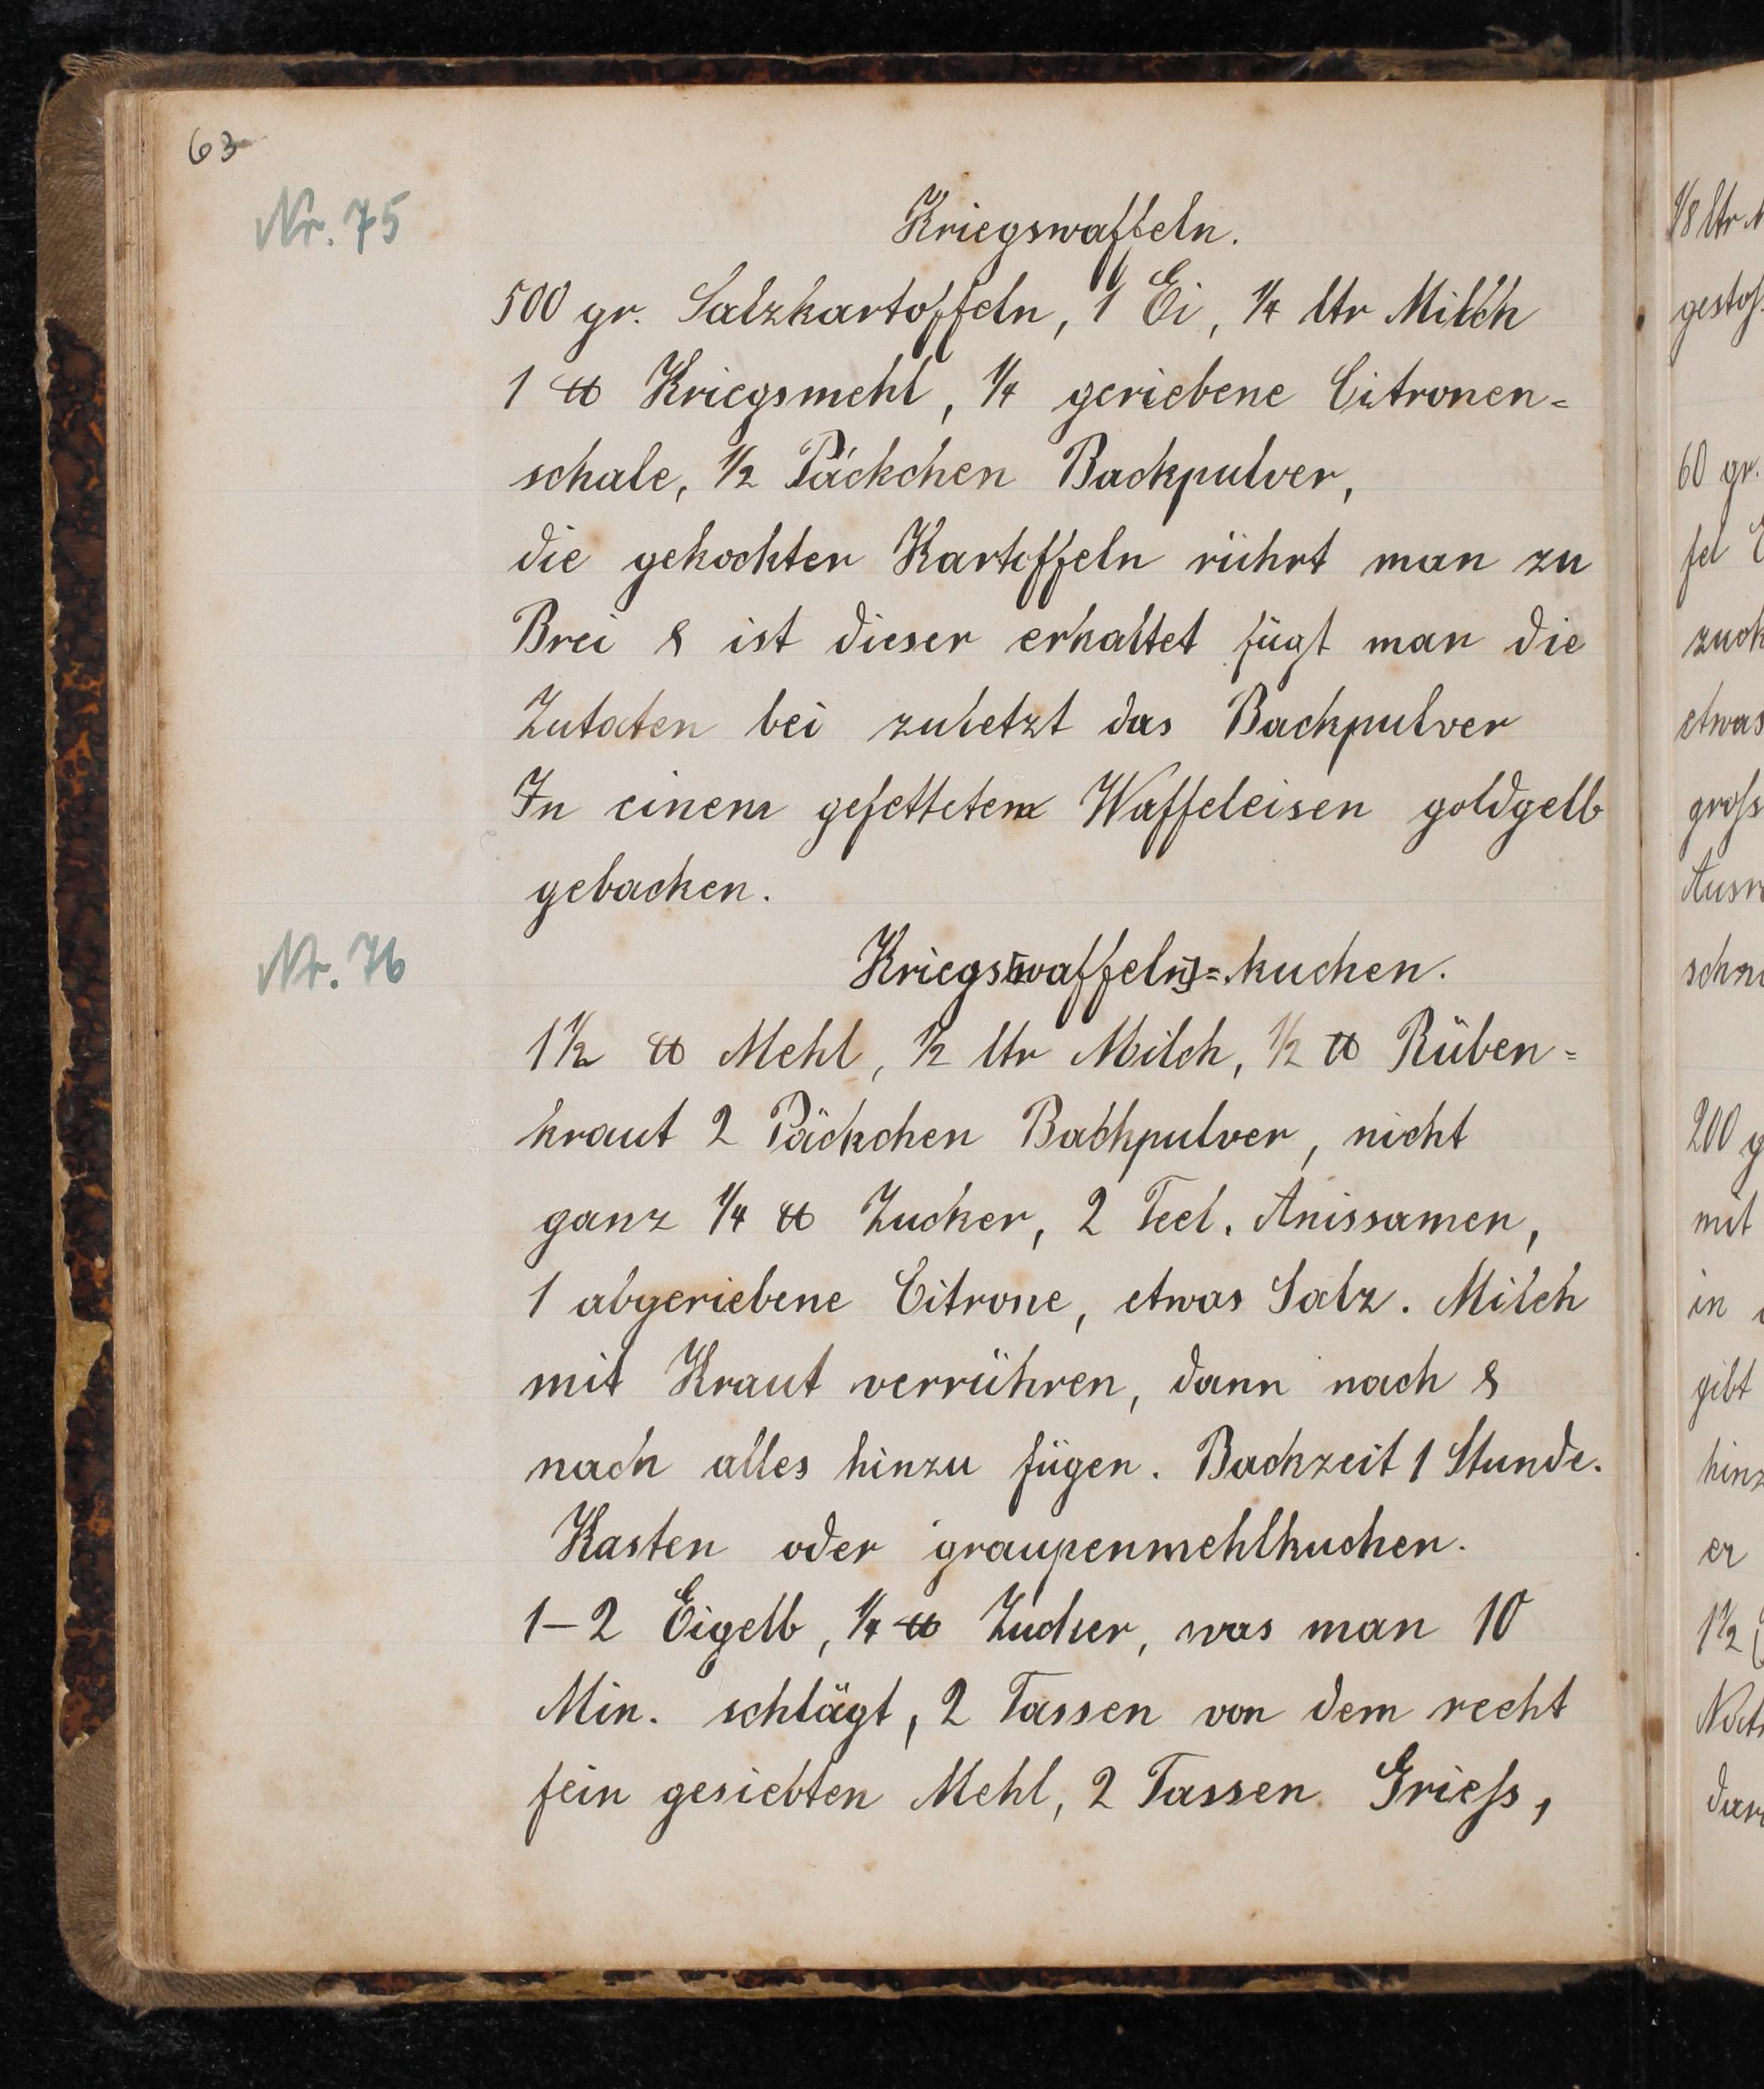 63
Nr. 75
Kriegswaffeln.
500 gr. Salzkartoffeln, 1 Ei, 1/4 ltr Milch
1 ℔ Kriegsmehl, 1/4 geriebene Citronen=
schale, 1/2 Päckchen Backpulver,
die gekochten Kartoffeln rührt man zu
Brei & ist dieser erkaltet fügt man die
Zutaten bei zuletzt das Backpulver
In einem gefettetem Waffeleisen goldgelb
gebacken.
Nr. 76
Kriegs[waffeln]=kuchen.
1 1/2 ℔ Mehl, 1/2 ltr Milch, 1/2 ℔ Rüben=
kraut 2 Päckchen Backpulver, nicht
ganz 1/4 ℔ Zucker, 2 Teel. Anissamen,
1 abgeriebene Citrone, etwas Salz. Milch
mit Kraut verrühren, dann nach &
nach alles hinzu fügen. Backzeit 1 Stunde.
Kasten oder graupenmehlkuchen.
1–2 Eigelb, 1/4 ℔ Zucker, was man 10
Min. schlägt, 2 Tassen von dem recht
fein gesiebten Mehl, 2 Tassen Grieſs,
1/8 ltr
60 gr.
etwas
200 g
mit
in
gibt
er
1 1/2